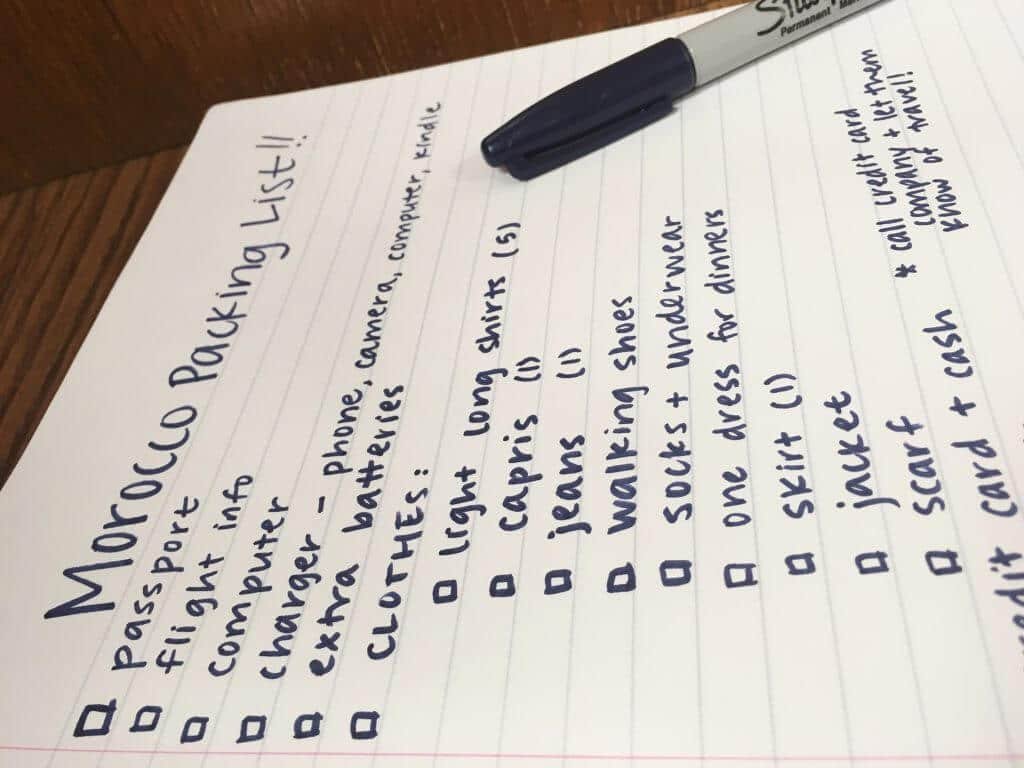 Morocco Packing List!!
passport
flight info
computer
charger - phone, camera, computer, kindle
extra batteries
CLOTHES:
light long shirts (5)
capris (1)
jeans (1)
walking shoes
socks + underwear
one dress for dinners
skirt (1)
jacket
scarf
credit card + cash
* call credit card
company + let them
know of travel!
Permanent